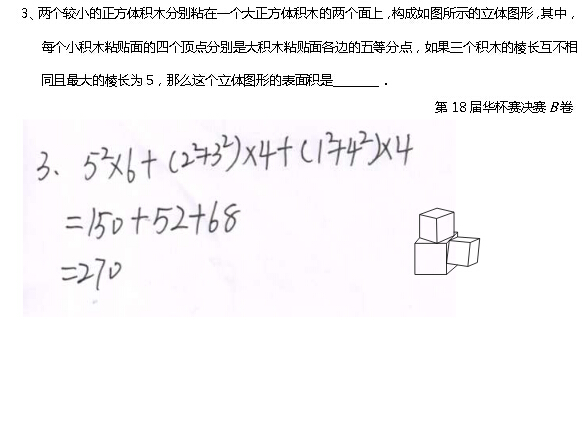 3、两个较小的正方体积木分别粘在一个大正方体积木的两个面上，构成如图所示的立体图形，其中，
每个小积木粘贴面的四个顶点分别是大积木粘贴面各边的五等分点，如果三个积木的棱长互不相
同且最大的棱长为 5，那么这个立体图形的表面积是______．
第 18 届华杯赛决赛 B 卷
3、5²×6+(2²+3²)×4+(1²+4²)×4
=150+52+68
=270